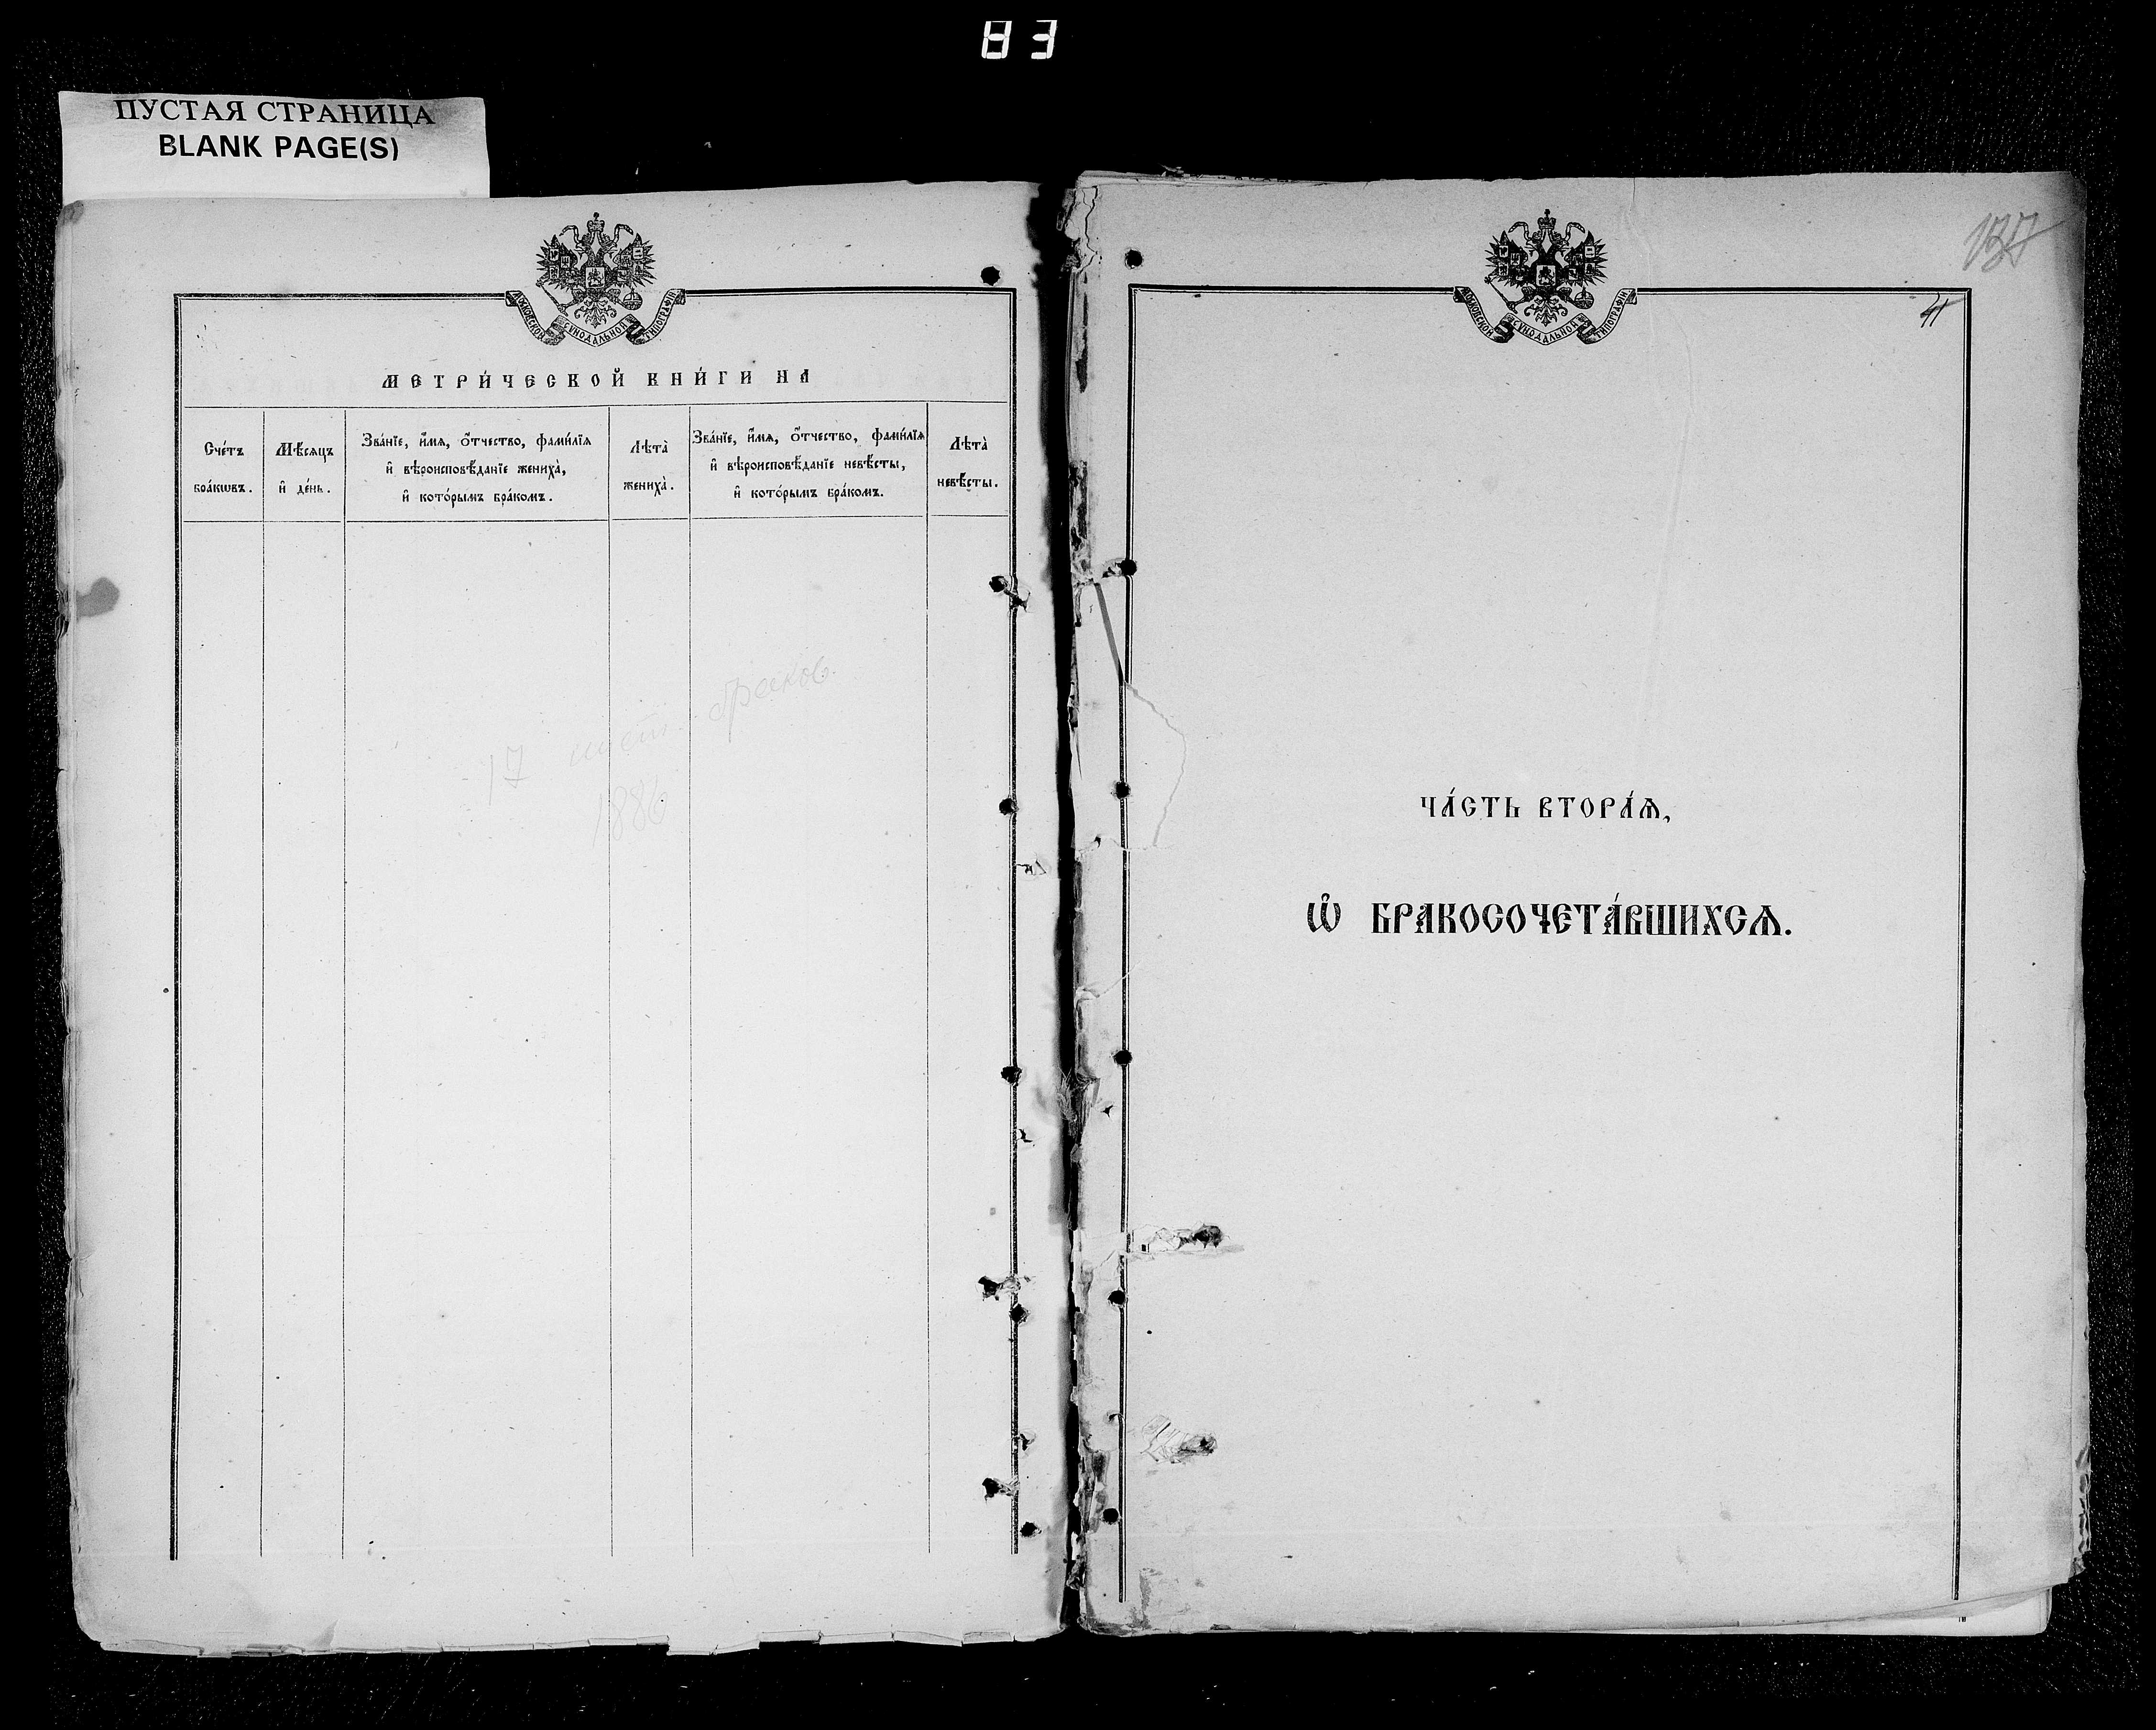 83
ПУСТАЯ СТРАНИЦА
BLANK PAGE(S)
МОСКОВСКОЙ СѴНОДАЛЬНОЙ ТИПОГРАФІИ
МЕТРИ́ЧЕСКОЙ КНИ́ГИ НА
Сче́тъ бра́кѡвъ.
Мѣ́сяцъ и҆ де́нь.
Зва́нїе, и҆́мѧ, ѻ҆́тчество, фами́лїѧ
и҆ вѣроисповѣ́данїе жениха̀,
и҆ кото́рымъ бра́комъ.
Лѣта̀ жениха̀.
Зва́нїе, и҆́мѧ, ѻ҆́тчество, фами́лїѧ
и҆ вѣроисповѣ́данїе невѣ́сты,
и҆ кото́рымъ бра́комъ.
Лѣта̀ невѣ́сты.
17 браков
1886
МОСКОВСКОЙ СѴНОДАЛЬНОЙ ТИПОГРАФІИ
41
ЧА́СТЬ ВТОРА́Ѧ,
Ѡ҆ БРАКОСОЧЕТА́ВШИХСѦ.